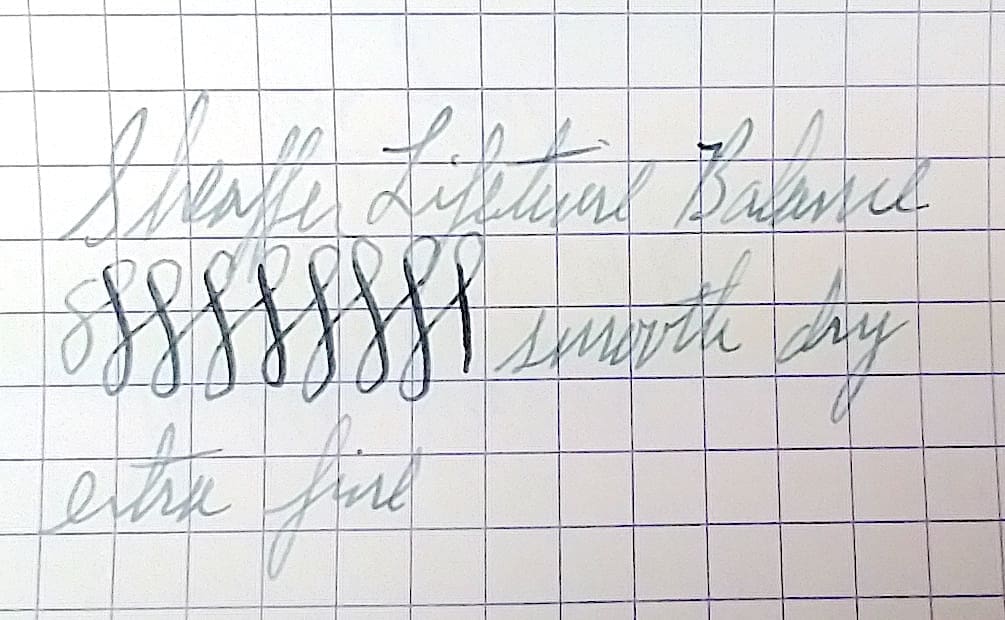 Sheaffer Lifetime Balance
smooth dry
extra fine